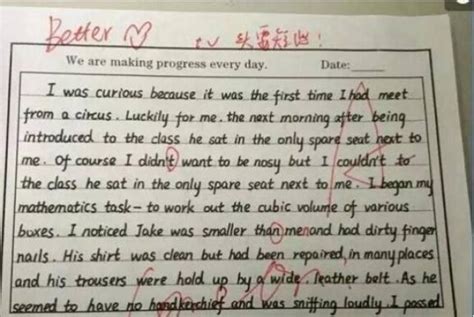 Better ♡ 头重短些!
We are making progress every day. Date:
I was curious because it was the first time I had meet
from a circus. Luckily for me. the next morning after being
introduced to the class he sat in the only spare seat next to
me. Of course I didn't want to be nosy but I couldn't to
the class he sat in the only spare seat next to me. I began my
mathematics task- to work out the cubic volume of various
boxes. I noticed Jake was smaller than me and had dirty finger
nails. His shirt was clean but had been repaired, in many places
and his trousers were hold up by a wide, leather belt. As he
seemed to have no handkerchief and was sniffing loudly. I passed